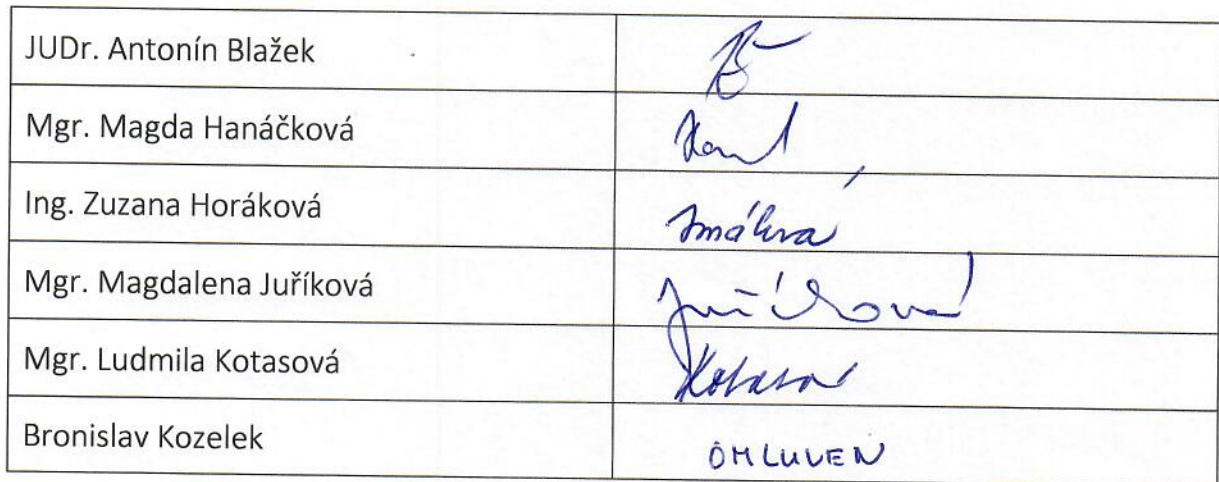 JUDr. Antonín Blažek
Mgr. Magda Hanáčková
Ing. Zuzana Horáková
Mgr. Magdalena Juříková Juříková
Mgr. Ludmila Kotasová
Bronislav Kozelek OMLUVEN